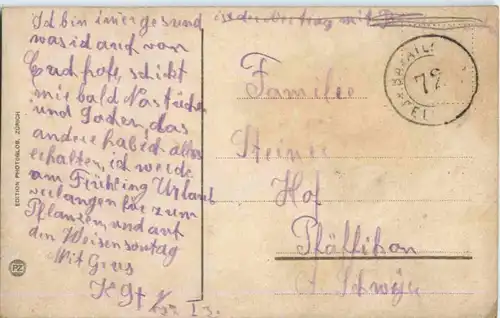 ist der Vertrag mit
Ich bin immer gesund
was ich auch von
Euch hofe, schikt
mir bald Nastücher
und Socken, das
andere hab ich alles
erhalten, ich werde
am Frühling Urlaub
verlangen für zum
Pflanzen und auf
den Weisensontag
Mit Grus
EDITION PHOTOGLOB, ZÜRICH
PZ
72
Familie
Steiner
Hof
Pfäffikon
Kt. Schwyz